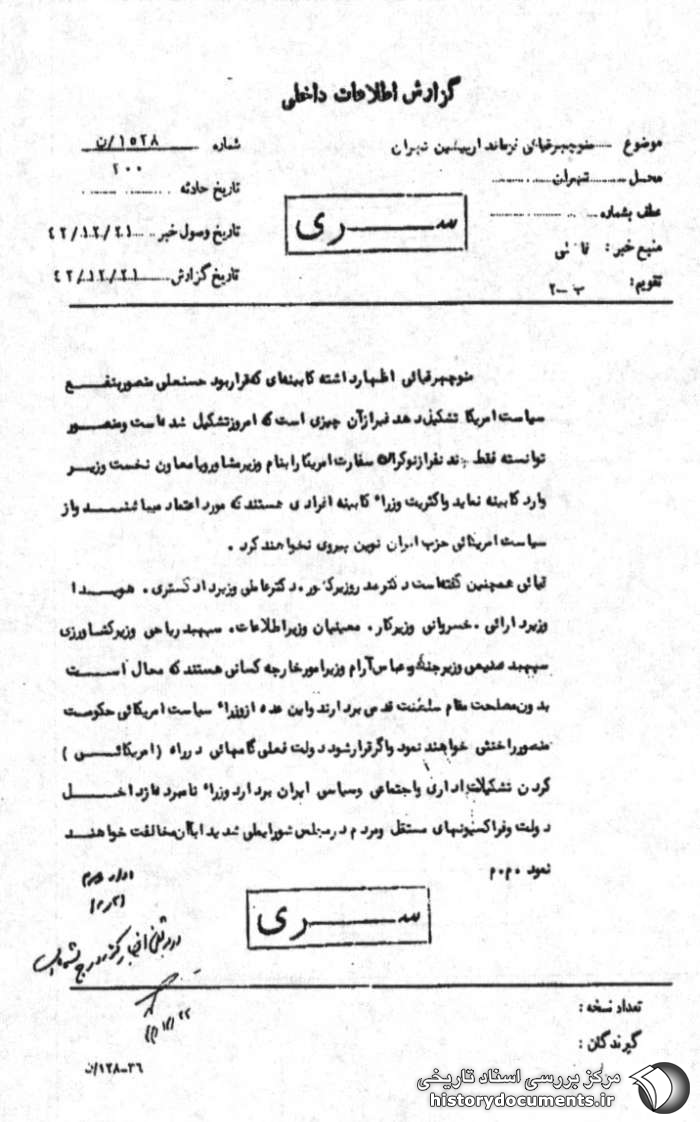 گزارش اطلاعات داخلی
موضوع منوچهر قیائی فرماند تهران
محل تهران
عطف بشماره
منبع خبر :
تقویم : ب-۲
شماره ۱۵۲۸/ن
۲۰۰
تاریخ حادثه
تاریخ وصول خبر ۴۲/۱۲/۲۱
تاریخ گزارش ۴۲/۱۲/۲۱
ســری
منوچهر قیائی اظهار داشته کابینه‌ای که قرار بود حسنعلی منصور بنفع
سیاست امریکا تشکیل دهد غیر از آن چیزی است که امروز تشکیل شده است و منصور
توانسته فقط چند نفر از نوکران سفارت امریکا را بنام وزیر مشاور و یا معاون نخست وزیر
وارد کابینه نماید و اکثریت وزراء کابینه افرادی هستند که مورد اعتماد میباشند و از
سیاست امریکائی حزب ایران نوین پیروی نخواهند کرد .
قیائی همچنین گفته است دکتر صدر وزیر کشور . دکتر عاملی وزیر دادگستری . هویدا
وزیر دارائی . خسروانی وزیر کار . معینیان وزیر اطلاعات . سپهبد ریاحی وزیر کشاورزی
سپهبد صنیعی وزیر جنگ و عباس آرام وزیر امور خارجه کسانی هستند که محال است
بدون مصلحت مقام سلطنت قدمی بردارند و این عده از وزراء سیاست امریکائی حکومت
منصور را خنثی خواهند نمود و اگر قرار شود دولت فعلی گامهائی در راه ( امریکائی )
کردن تشکیلات اداری و اجتماعی و سیاسی ایران بردارد وزراء نامبرده از داخل
دولت و فراکسیونهای مستقل و مردم در مجلس شورایملی شدیدا با آن مخالفت خواهند
نمود . م . م
ســری
تعداد نسخه :
گیرندگان :
۱۲۸-۳۶/ن
مرکز بررسی اسناد تاریخی
historydocuments.ir